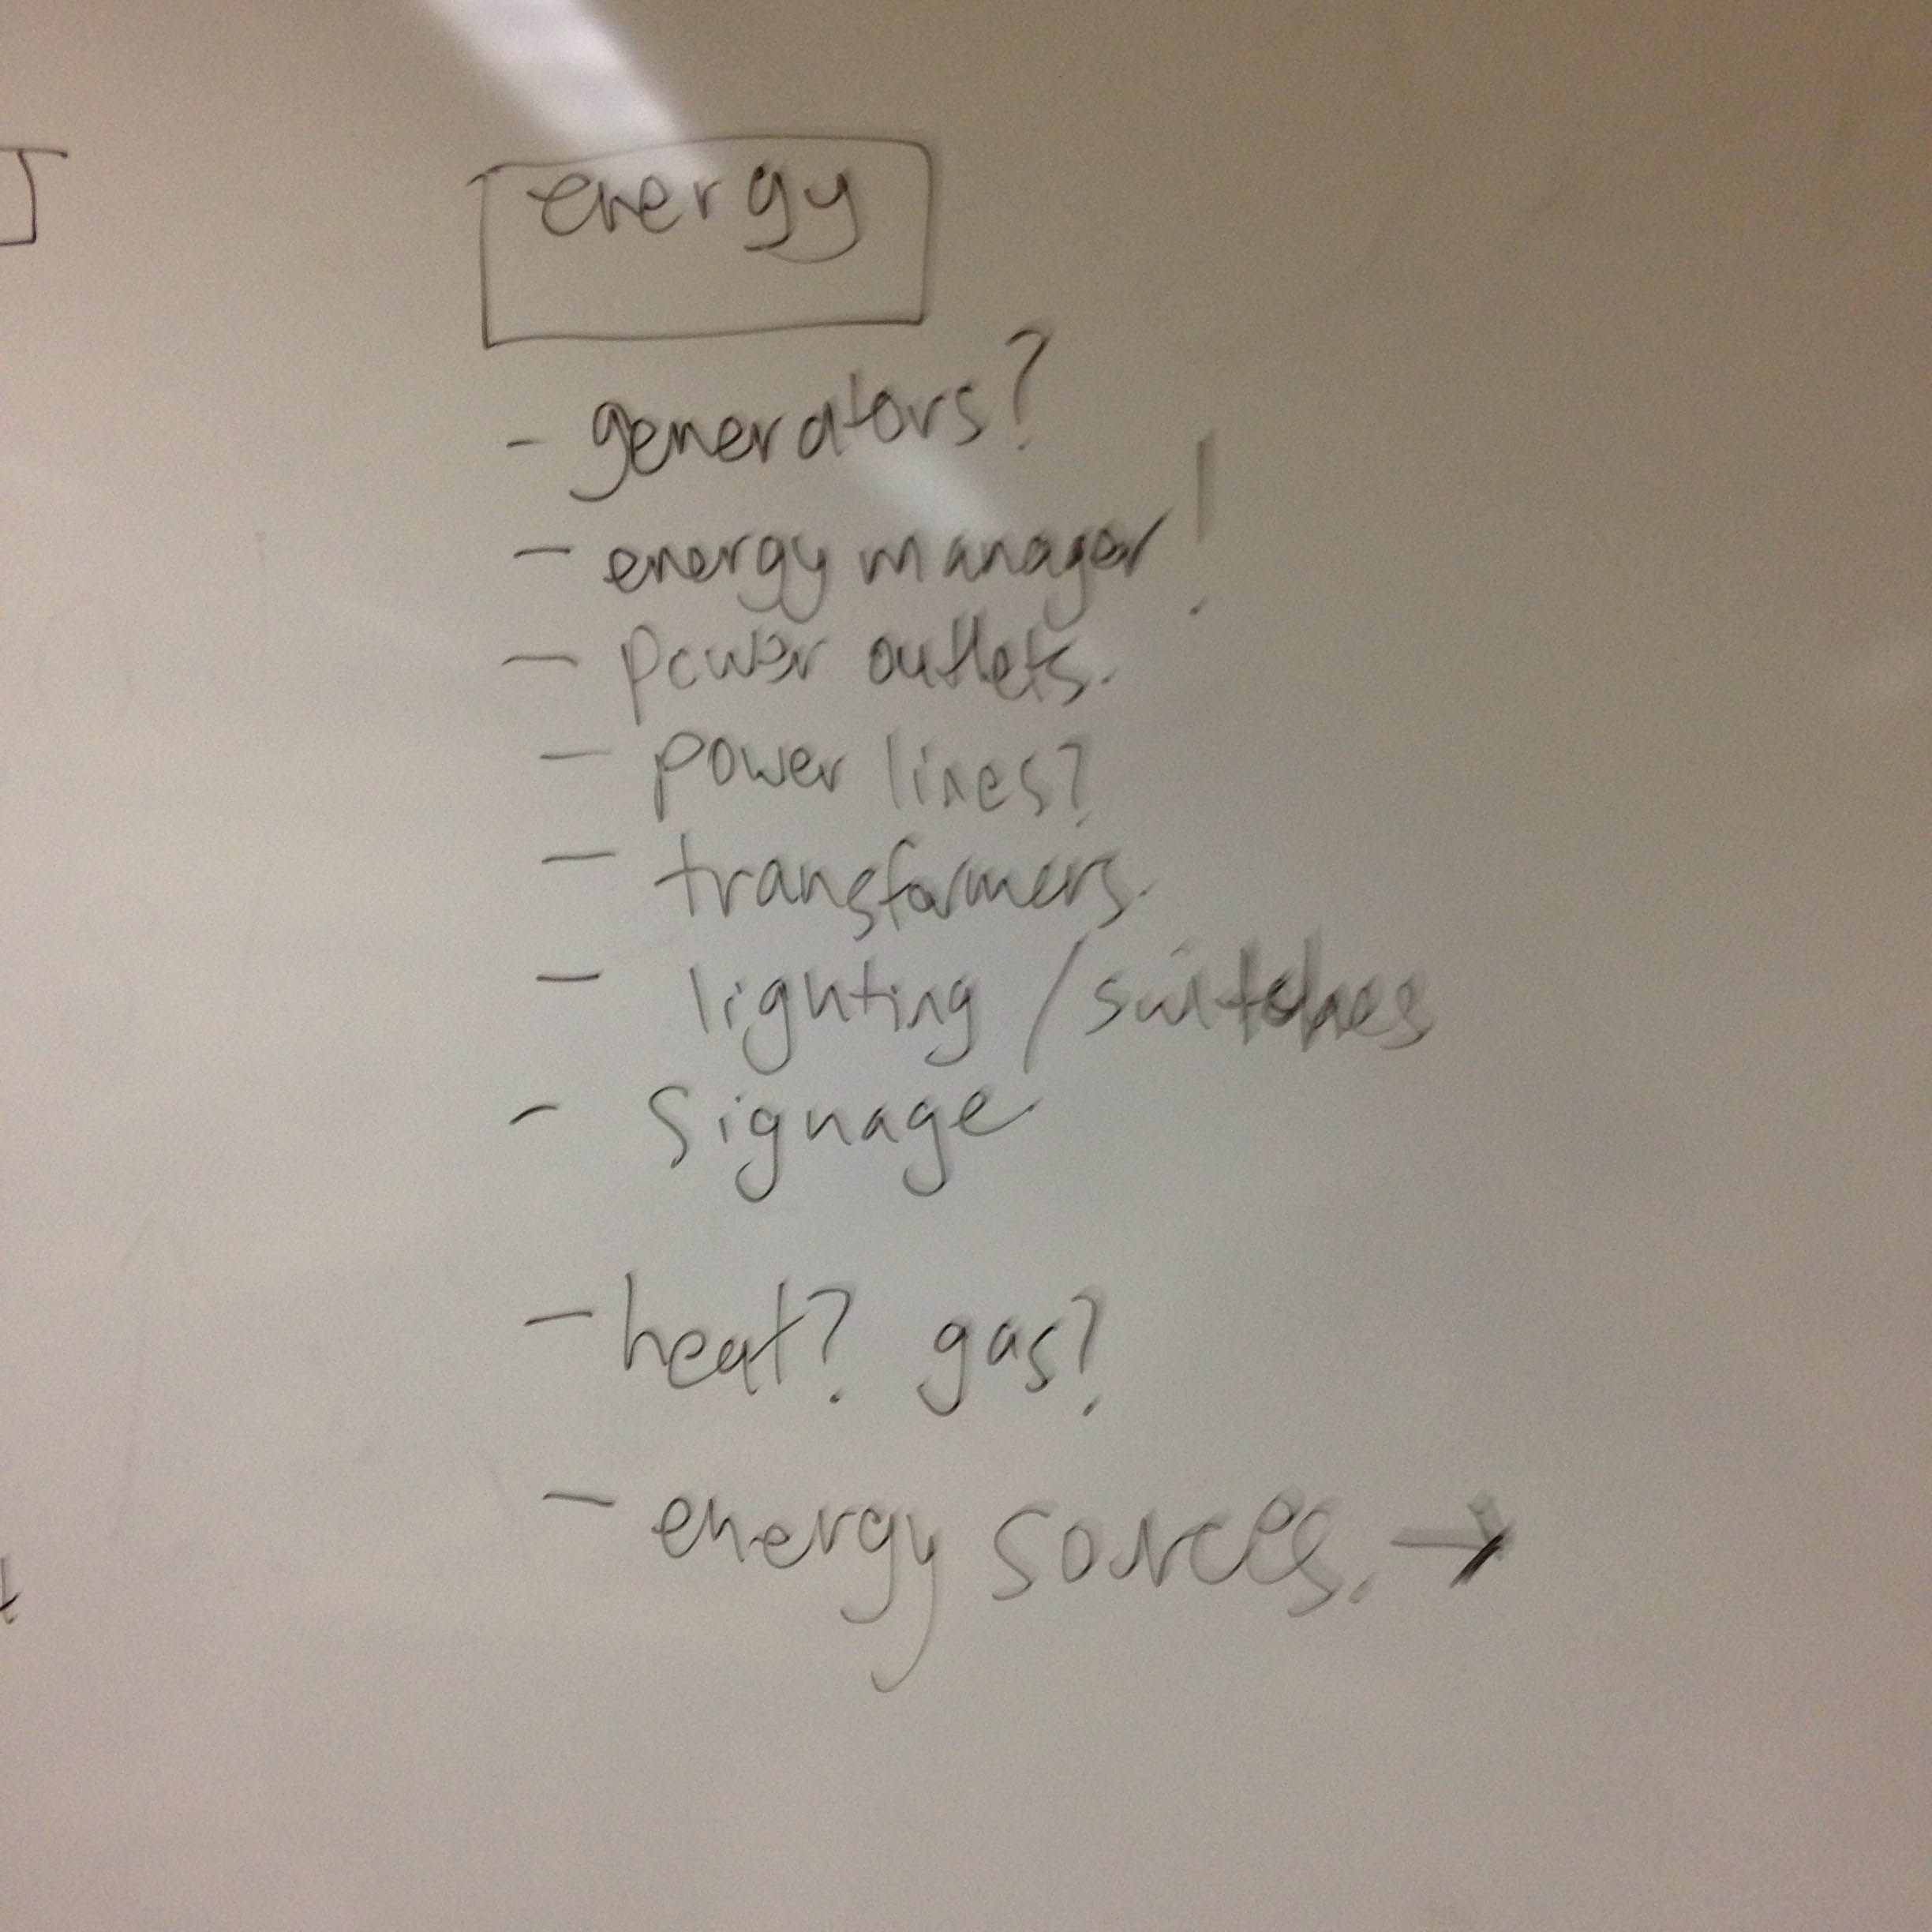 energy
- generators?
- energy manager!
- power outlets.
- power lines?
- transformers.
- lighting / switches
- Signage
- heat? gas?
- energy sources. →